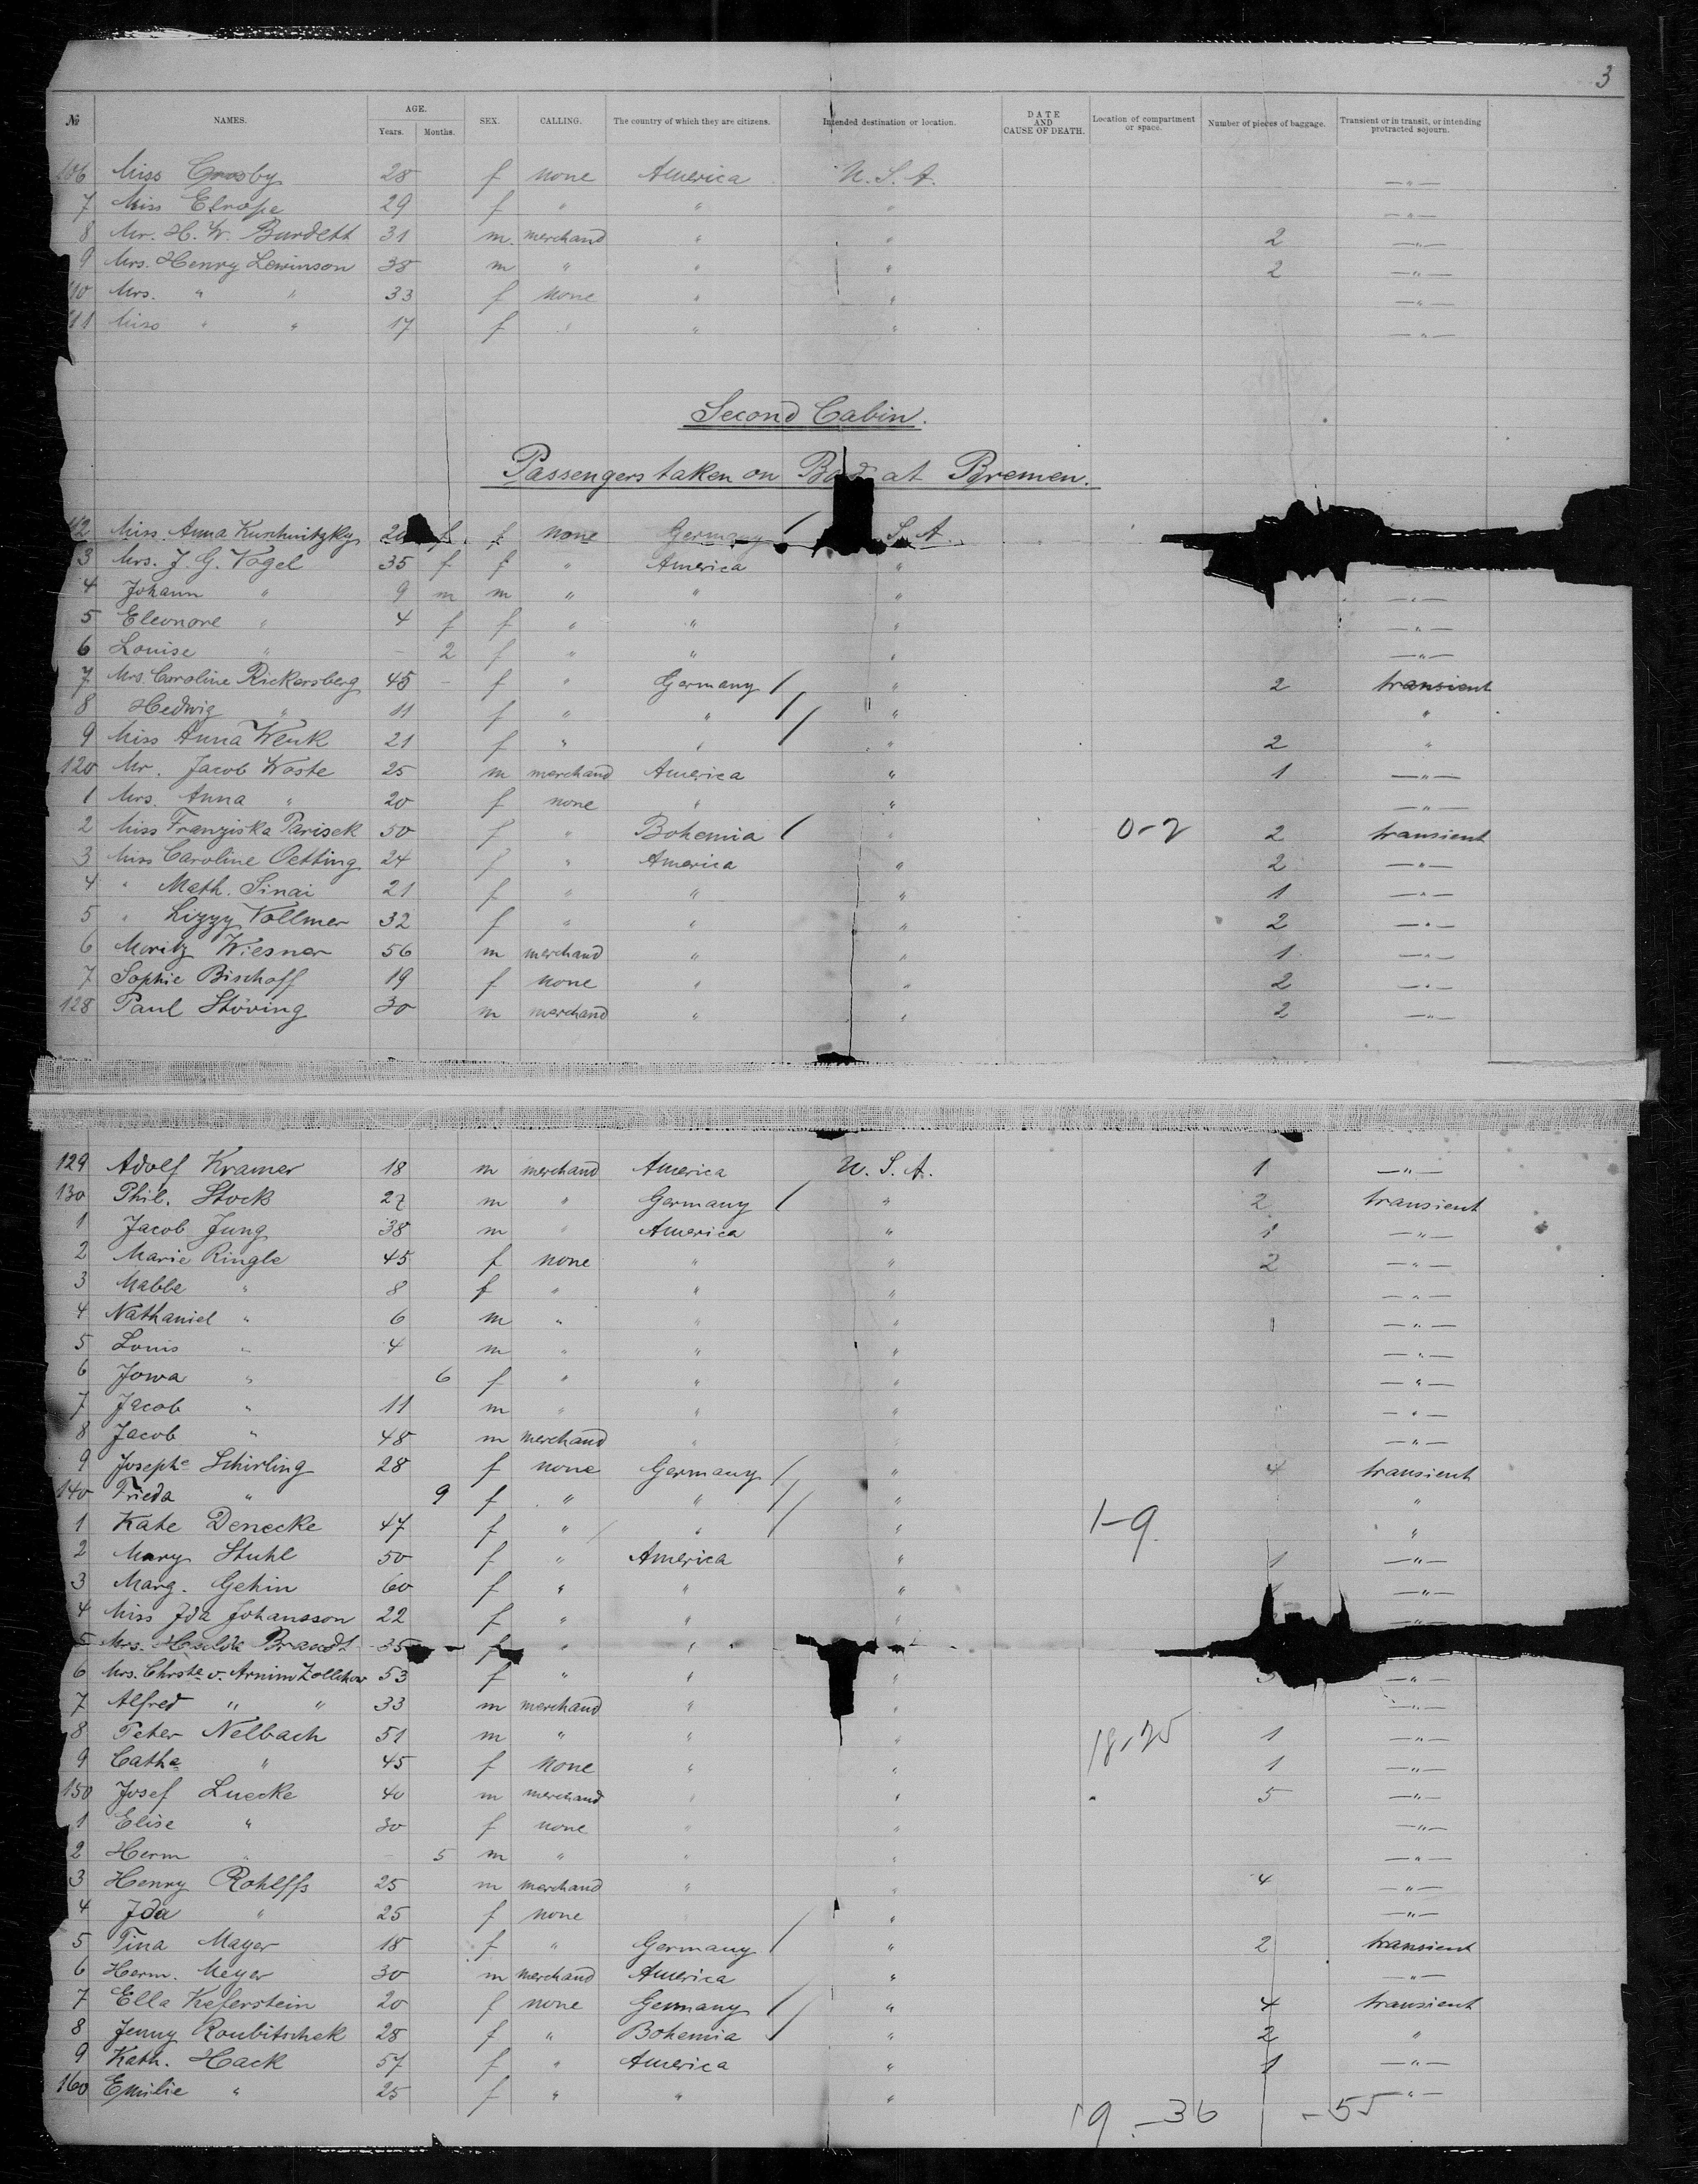 3
№ NAMES. AGE. Years. Months. SEX. CALLING. The country of which they are citizens. Intended destination or location. DATE AND CAUSE OF DEATH. Location of compartment or space. Number of pieces of baggage. Transient or in transit, or intending protracted sojourn.
106 Miss Crosby 28 f none America U. S. A. —"—
7 Miss 29 f " " " —"—
8 Mr. H. W. Burdett 31 m merchand " " 2 —"—
9 Mrs. Henry Lewinson 38 m " " " 2 —"—
110 Mrs. " " 33 f none " " —"—
111 Miss " " 17 f " " " —"—
Second Cabin.
Passengers taken on at Bremen.
112 Miss Anna Kuschnitzky f f none Germany / S. A.
3 Mrs. J. G. Vogel 35 f f " America "
4 Johann " 9 m m " " " —"—
5 Eleonore " 4 f f " " " —"—
6 Louise " – 2 f " " " —"—
7 Mrs. Caroline Rickersberg 45 – f " Germany / " 2 transient
8 Hedwig " 11 f " " / " "
9 Miss Anna Wenk 21 f " " / " 2 "
120 Mr. Jacob Woste 25 m merchand America " 1 —"—
1 Mrs. Anna " 20 f none " " —"—
2 Miss Franziska Parisek 50 f " Bohemia / " 0-2 2 transient
3 Miss Caroline Oetting 24 f " America " 2 —"—
4 " Math. Sinai 21 f " " " 1 —"—
5 " Lizzy Vollmer 32 f " " " 2 —"—
6 Moritz Wiesner 56 m merchand " " 1 —"—
7 Sophie Bischoff 19 f none " " 2 —"—
128 Paul Stöving 30 m merchand " " 2 —"—
129 Adolf Kramer 18 m merchand America U. S. A. 1 —"—
130 Phil. Stock 27 m " Germany / " 2 transient
1 Jacob Jung 38 m " America " 1 —"—
2 Marie Ringle 45 f none " " 2 —"—
3 Mabbe " 8 f " " " —"—
4 Nathaniel " 6 m " " " 1 —"—
5 Louis " 4 m " " " —"—
6 Jowa " 6 f " " " —"—
7 Jacob " 11 m " " " —"—
8 Jacob " 48 m merchand " " —"—
9 Josephe Schirling 28 f none Germany / " 4 transient
140 Frieda " 9 f " " / " "
1 Kate Denecke 47 f " " / " 1-9 "
2 Mary Stuhl 50 f " America " 1 —"—
3 Marg. Gehin 60 f " " " —"—
4 Miss Ida Johansson 22 f " " " —"—
5 Mrs. Brandt 35 f " "
6 Mrs. Christe v. Arnim Zollchow 53 f " " " —"—
7 Alfred " " 33 m merchand " " —"—
8 Peter Nelbach 51 m " " " 18-25 1 —"—
9 Catha " 45 f none " " 1 —"—
150 Josef Luecke 40 m merchand " " 5 —"—
1 Elise " 30 f none " " —"—
2 Herm " 5 m " " " —"—
3 Henry Rohlffs 25 m merchand " " 4 —"—
4 Ida " 25 f none " —"—
5 Tina Mayer 18 f " Germany / " 2 transient
6 Herm. Meyer 30 m merchand America " —"—
7 Ella Keferstein 20 f none Germany / " 4 transient
8 Jenny Roubitschek 28 f " Bohemia / " 2 "
9 Kath. Hack 57 f " America " 1 —"—
160 Emilie " 25 f " " " —"—
19 -36 -55